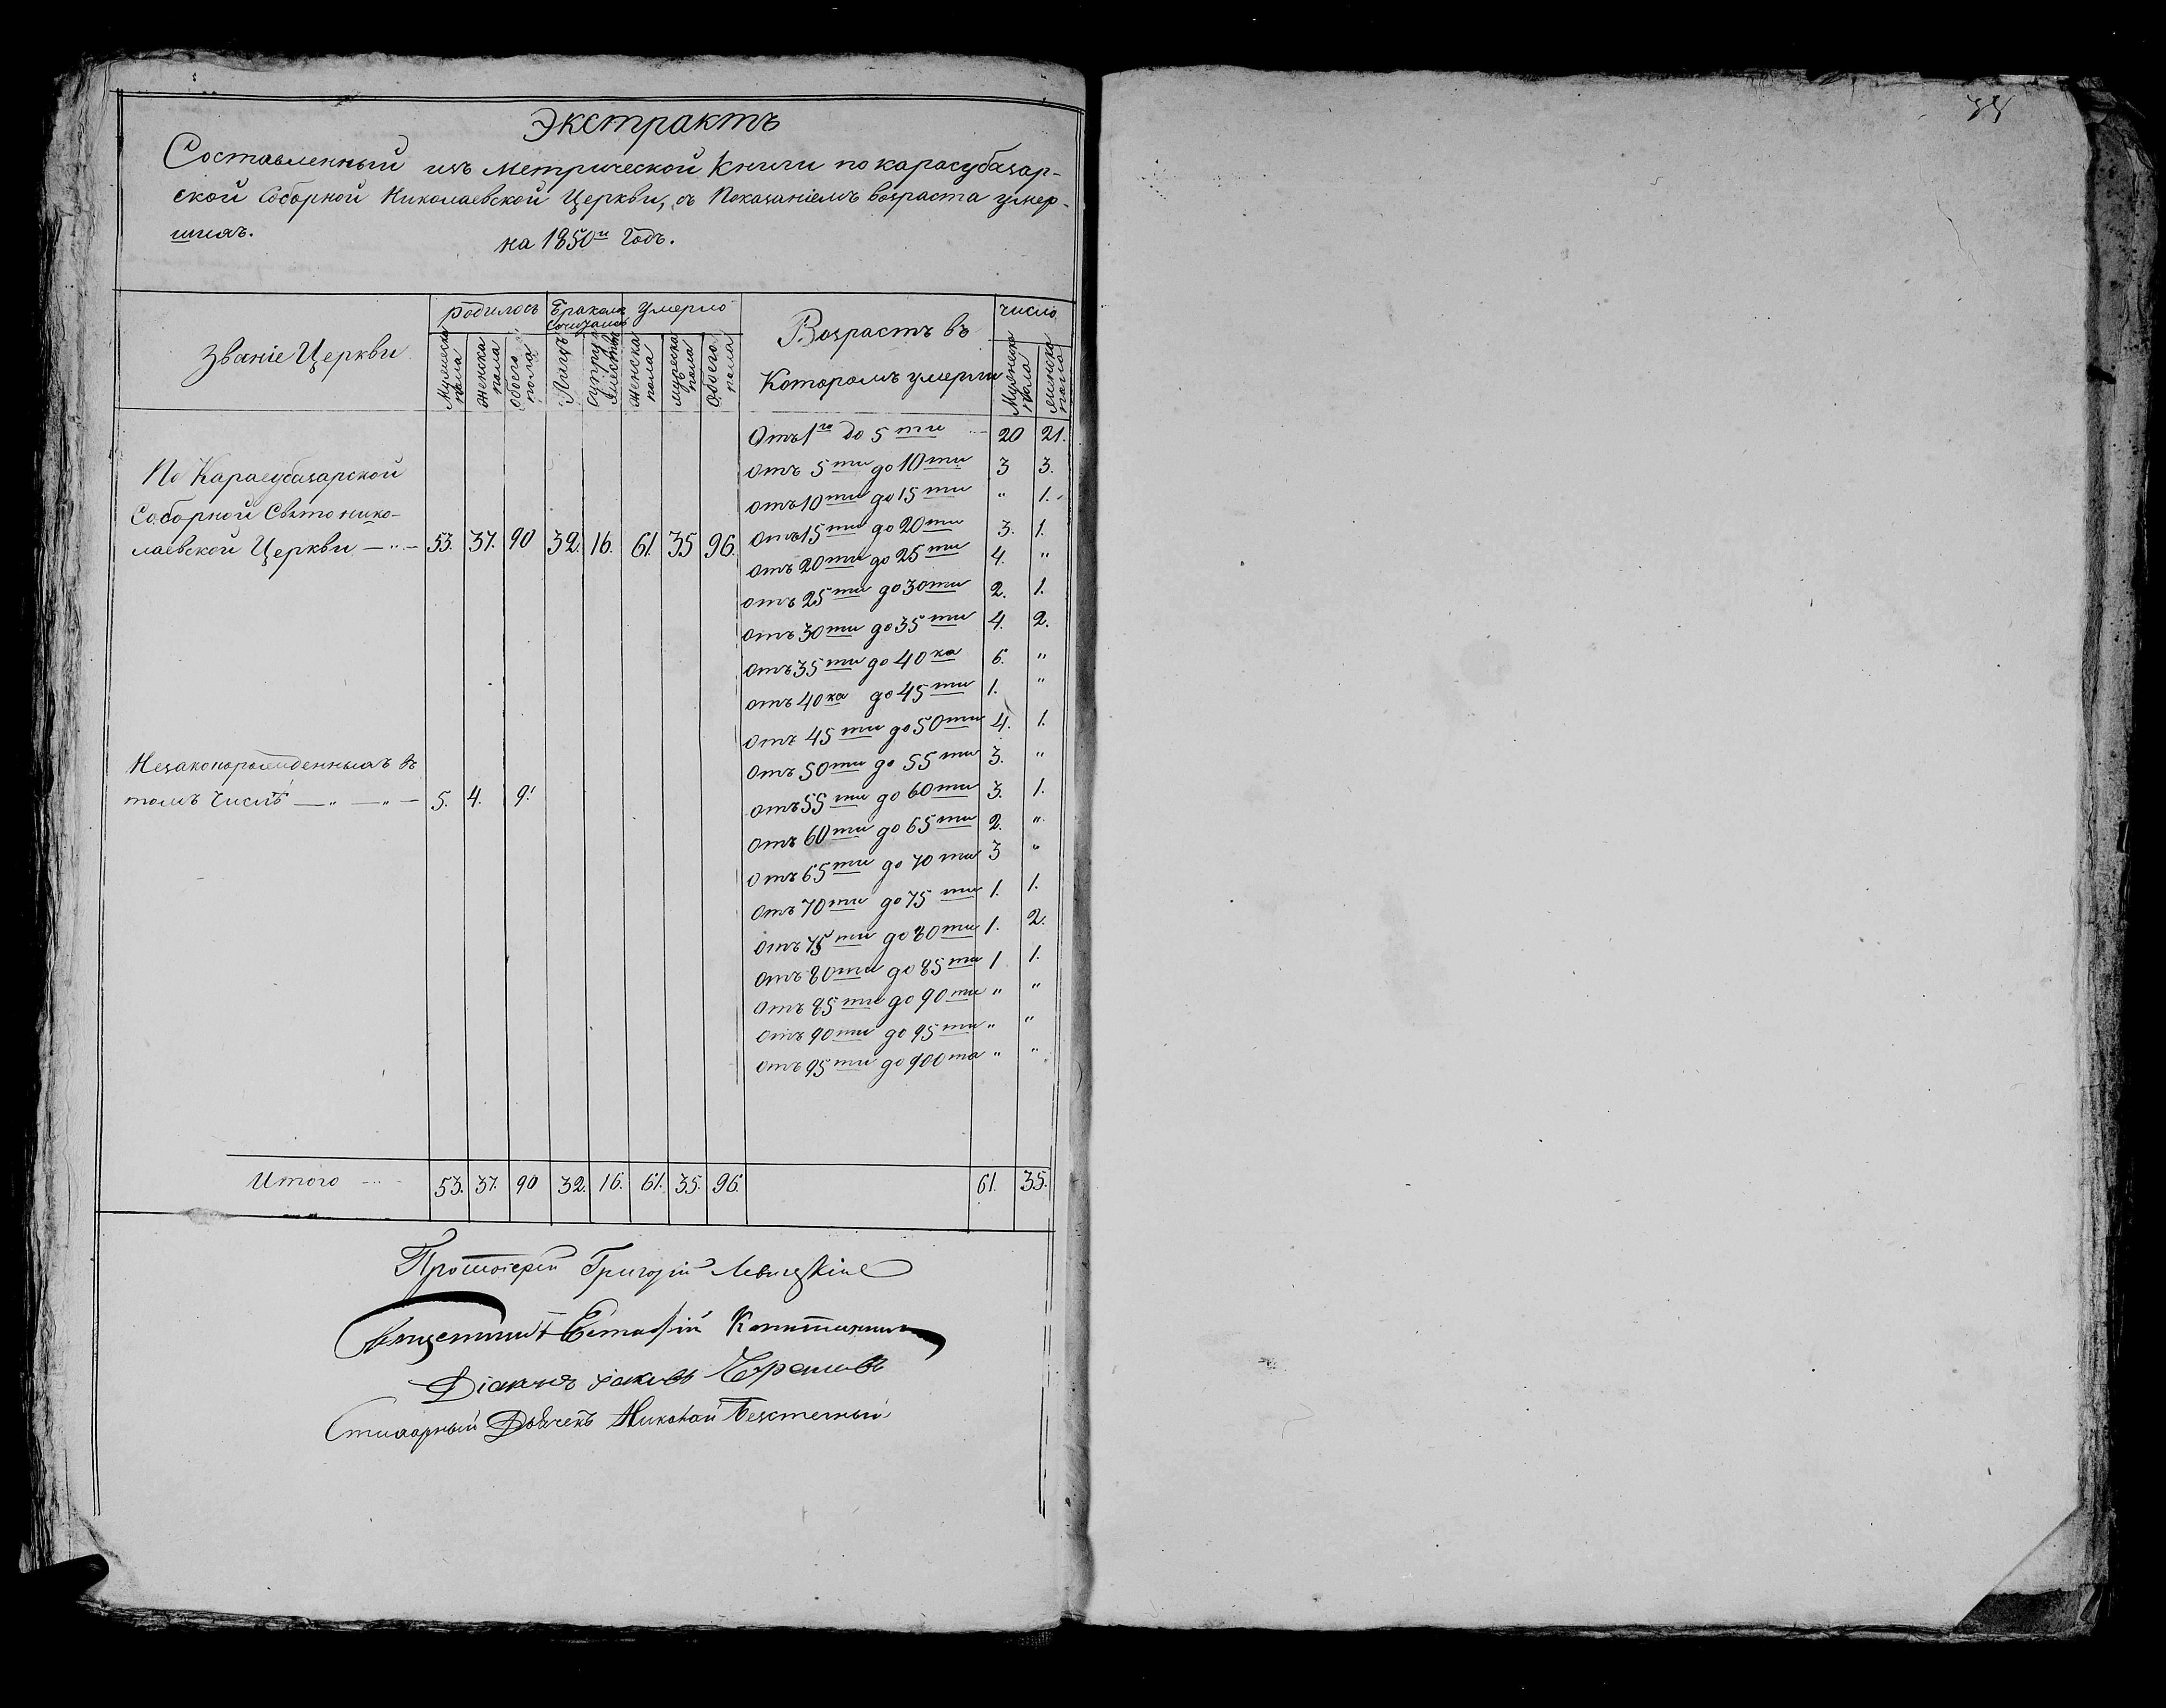 Экстрактъ
Составленный изъ Метрической Книги по карасубазар-
ской Соборной Николаевской Церкви, съ Показаніемъ возраста умер-
шихъ.
на 1850й Годъ.
Званіе Церкви
родилось
Мужеска пола
женска пола
обоего пола
Бракомъ Сочеталось
Лицъ
супружествъ
Умерло
женска пола
мужеска пола
Обоего пола
Возрастъ въ
Которомъ умерли
число
Мужеска пола
женска пола
По Карасубазарской
Соборной Свято нико-
лаевской Церкви — „ — 53. 37. 90 32. 16. 61. 35 96.
Незаконорожденныхъ въ
томъ Числѣ — „ — „ — 5. 4. 9.
Отъ 1го до 5ти 20 21.
отъ 5ти до 10ти 3 3.
отъ 10ти до 15ти „ 1.
отъ 15ти до 20ти 3. 1.
отъ 20ти до 25ти 4. „
отъ 25ти до 30ти 2. 1.
отъ 30ти до 35ти 4. 2.
отъ 35ти до 40ка 6. „
отъ 40ка до 45ти 1. „
отъ 45ти до 50ти 4. 1.
отъ 50ти до 55ти 3. „
отъ 55ти до 60ти 3. 1.
отъ 60ти до 65ти 2. „
отъ 65ти до 70ти 3 „
отъ 70ти до 75ти 1. 1.
отъ 75ти до 80ти 1. 2.
отъ 80ти до 85ти 1 1.
отъ 85ти до 90ти „ „
отъ 90ти до 95ти „ „
отъ 95ти до 100та „ „
Итого 53. 37. 90 32. 16. 61. 35. 96. 61. 35.
Протоіерей Григорій
Діаконъ Іаковъ
Стихарный Дьячекъ Николай